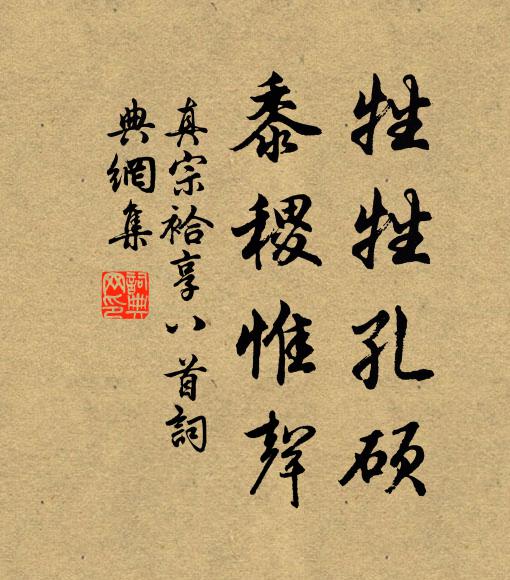 牲牲孔硕
黍稷惟聲
真宗祫享八首詞
典網集
詞典網印